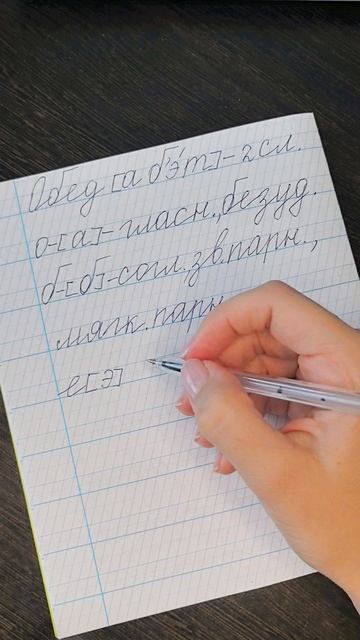 Обед [а б'э́т]-2 сл.
о-[а]-гласн., безуд.
б-[б']-согл. зв. парн.,
мягк. парн
е[э]